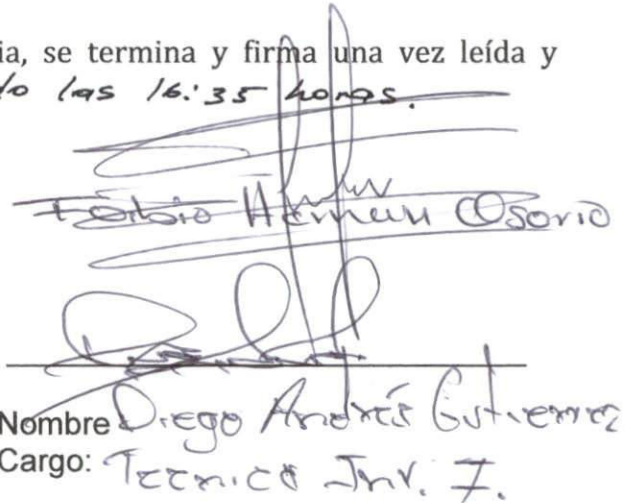 ia, se termina y firma una vez leída y
do las 16:35 horas.
Fabio Hernan Osorio
Nombre Diego Andrés Gutierrez
Cargo: Tecnico Inv. I.